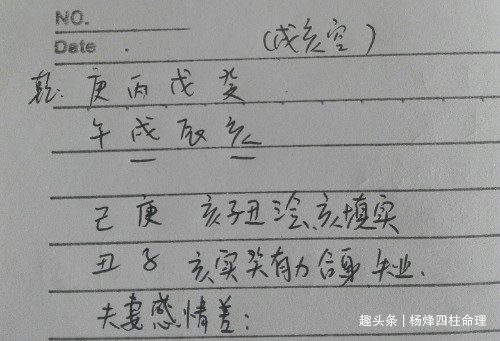 NO.
Date .
(戌亥空)
乾: 庚 丙 戊 癸
午 戌 辰 亥
己 庚 亥子丑三会,亥填实
丑 子 亥实癸有力合身 失业.
夫妻感情差:
趣头条 | 杨烽四柱命理